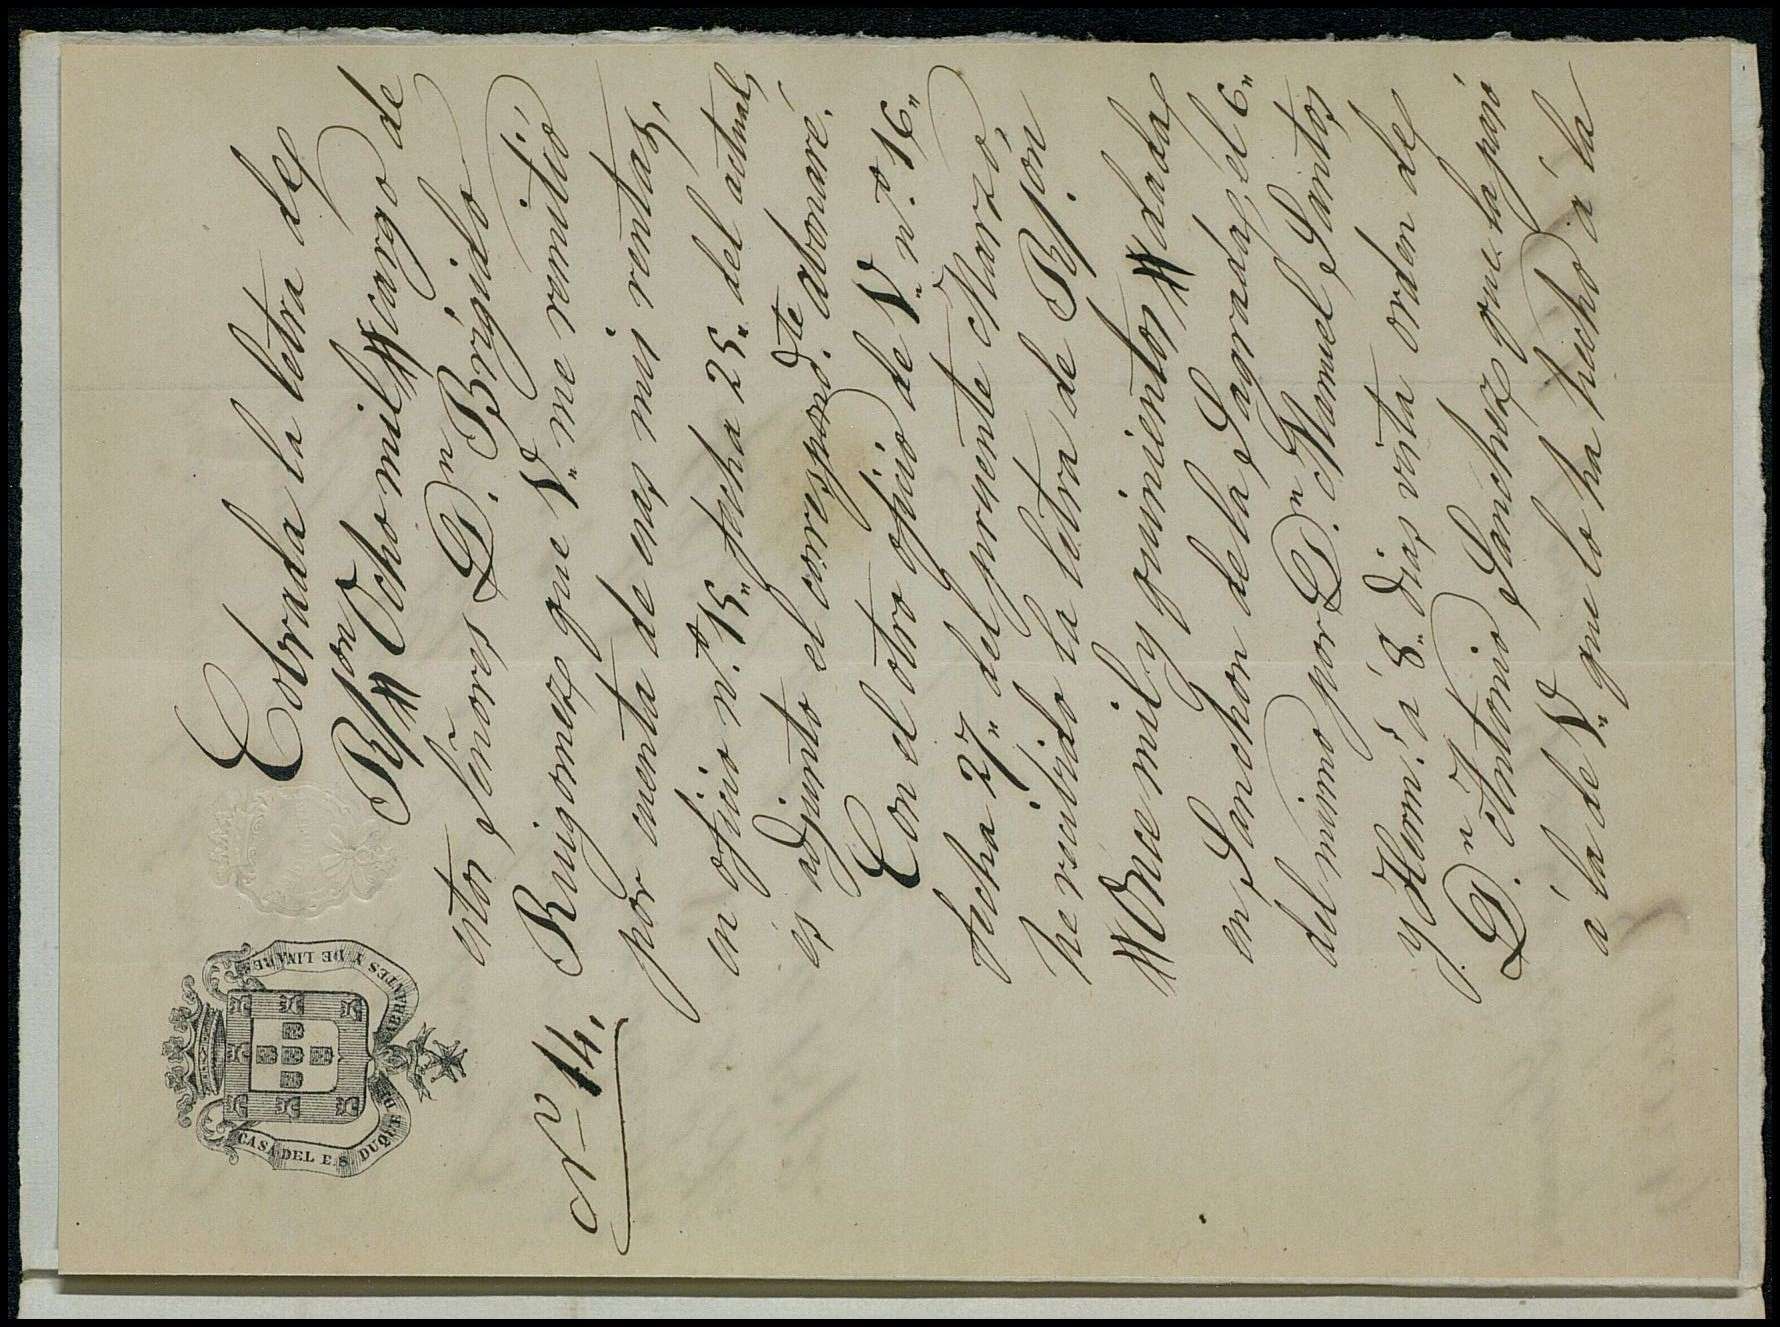 CASA DEL E. S. DUQUE DE ABRANTES Y DE LINARES
N.º 14.
Cobrada la letra de
Rs/on //Ocho mil// cargo de
estos señores D.n Brígido
Ruigomez que V. me remitió
por cuenta de esas mis rentas,
en oficio n.º 15. fecha 25. del actual,
es adjunto el correspond.te abonaré.
Con el otro oficio de V. n.º 16.
fecha 27. del presente Marzo,
he recibido la letra de Rs/on
//Once mil y quinientos// dada
en Sanchon de la Sagrada, el 6.
del mismo por D.n Manuel Santos
y Herm.º á 8. dias vista orden de
D.n Antonio Sanchez que la pasó
á la de V. que lo ha hecho á la